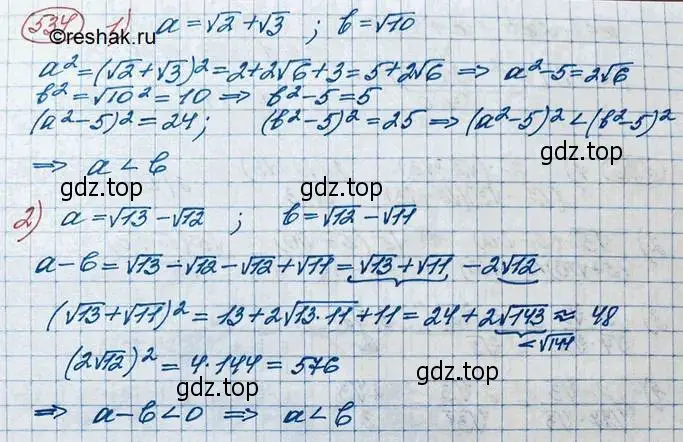 534 ©reshak.ru 1) a = √2 + √3 ; b = √10
a² = (√2 + √3)² = 2 + 2√6 + 3 = 5 + 2√6 ⇒ a² - 5 = 2√6
b² = √10² = 10 ⇒ b² - 5 = 5
(a² - 5)² = 24; (b² - 5)² = 25 ⇒ (a² - 5)² < (b² - 5)²
gdz.top
⇒ a < b
gdz.top
2) a = √13 - √12 ; b = √12 - √11
gdz.top
a - b = √13 - √12 - √12 + √11 = √13 + √11 - 2√12
(√13 + √11)² = 13 + 2√13·11 + 11 = 24 + 2√143 ≈ 48
<√144
(2√12)² = 4·144 = 576
gdz.top
gdz.top
⇒ a - b < 0 ⇒ a < b
gdz.top